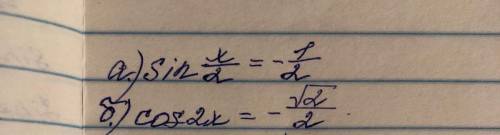 а.) sin x/2 = -1/2
б.) cos 2x = -√2/2